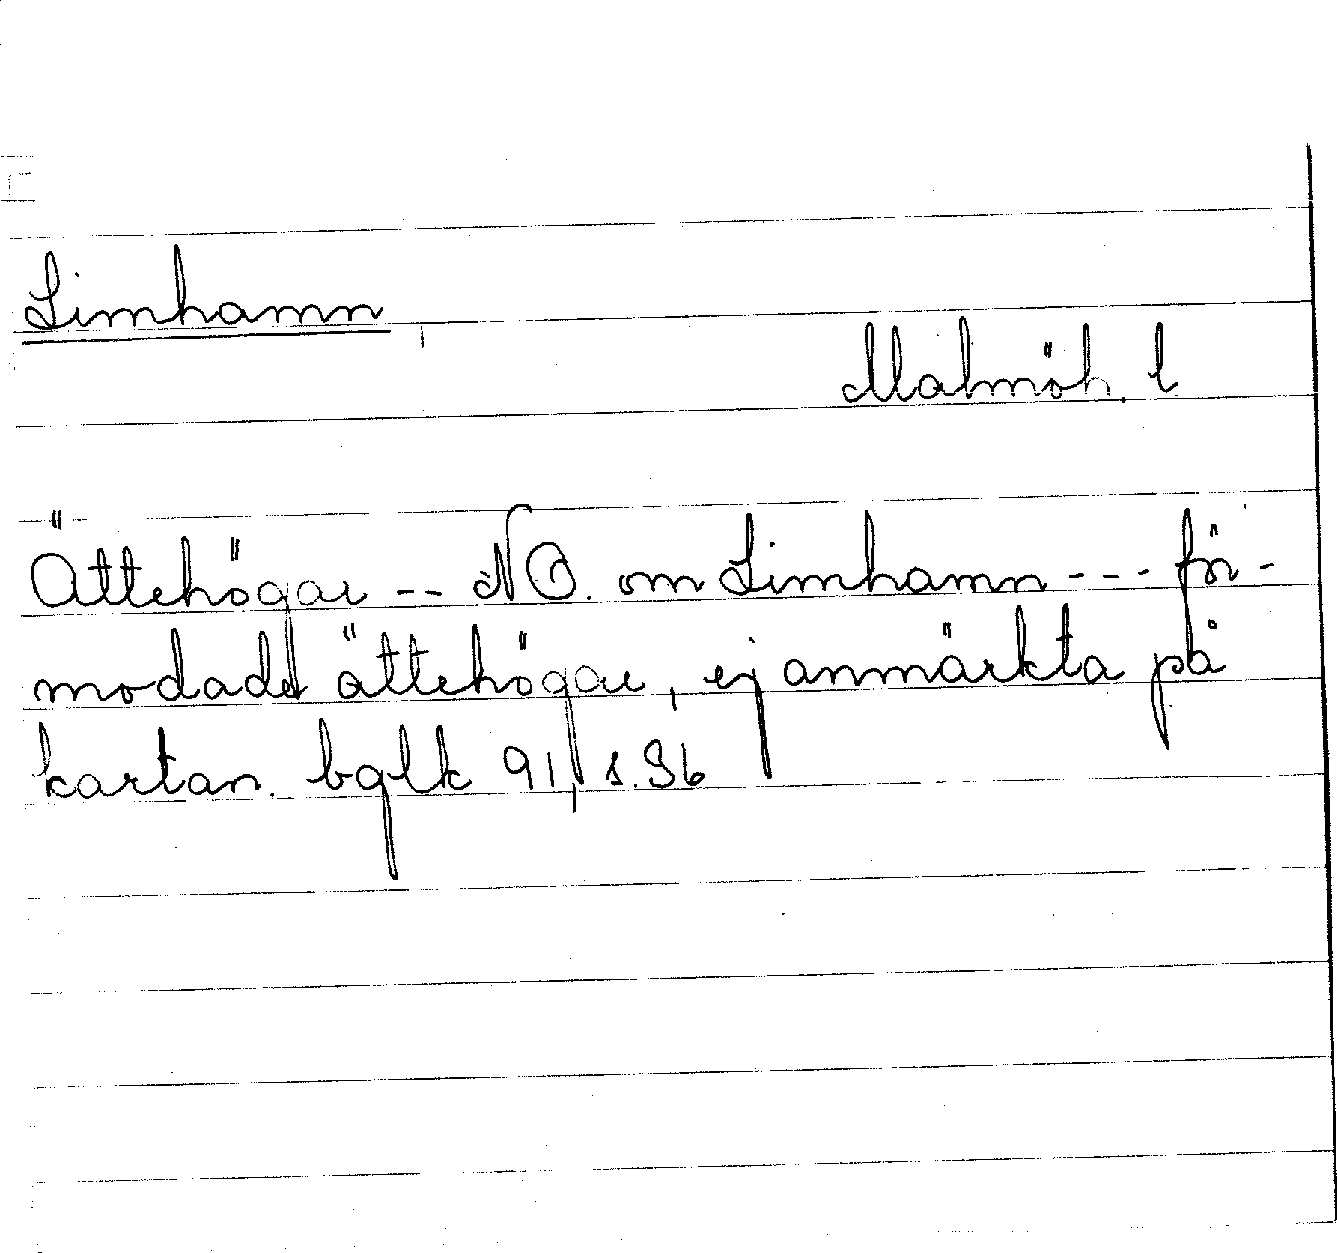 Limhamn
Malmöh. l
Ättehögar -- NO. om Limhamn --- för-
modade ättehögar, ej anmärkta på
kartan. bglk 91, s. 36